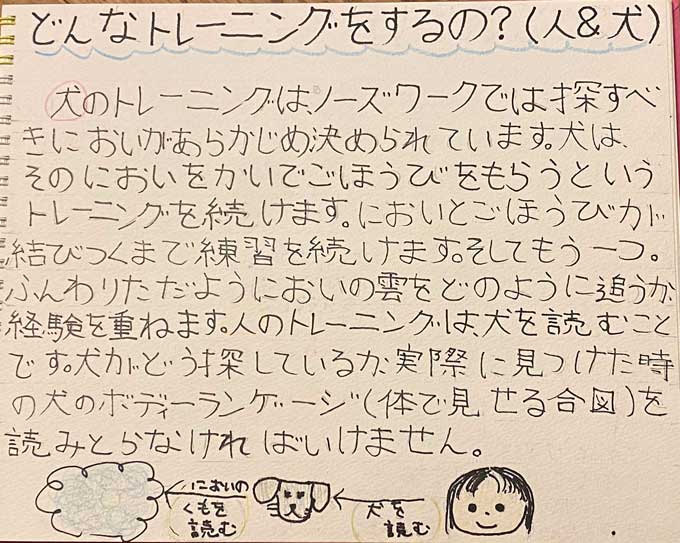 どんなトレーニングをするの?(人&犬)
犬のトレーニングは、ノーズワークでは探すべ
きにおいがあらかじめ決められています。犬は、
そのにおいをかいでごほうびをもらうという
トレーニングを続けます。においとごほうびが
結びつくまで練習を続けます。そしてもう一つ。
ふんわりただようにおいの雲をどのように追うか、
経験を重ねます。人のトレーニングは、犬を読むこと
です。犬がどう探しているか、実際に見つけた時
の犬のボディーランゲージ(体で見せる合図)を
読みとらなければいけません。
においの
くもを
読む
犬を
読む